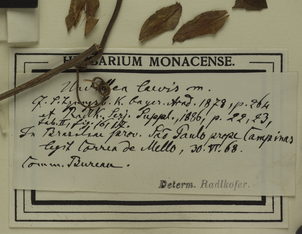 HERBARIUM MONACENSE.
laevis m.
k. bayer. Akad. 1878, p. 264
et Radlk. Serj. Suppl., 1886, p. 22, 23,
In Brasiliae prov. São Paulo prope Campinas
legit Correa de Mello, 30. VI. 68.
Comm. Bureau.
Determ. Radlkofer.